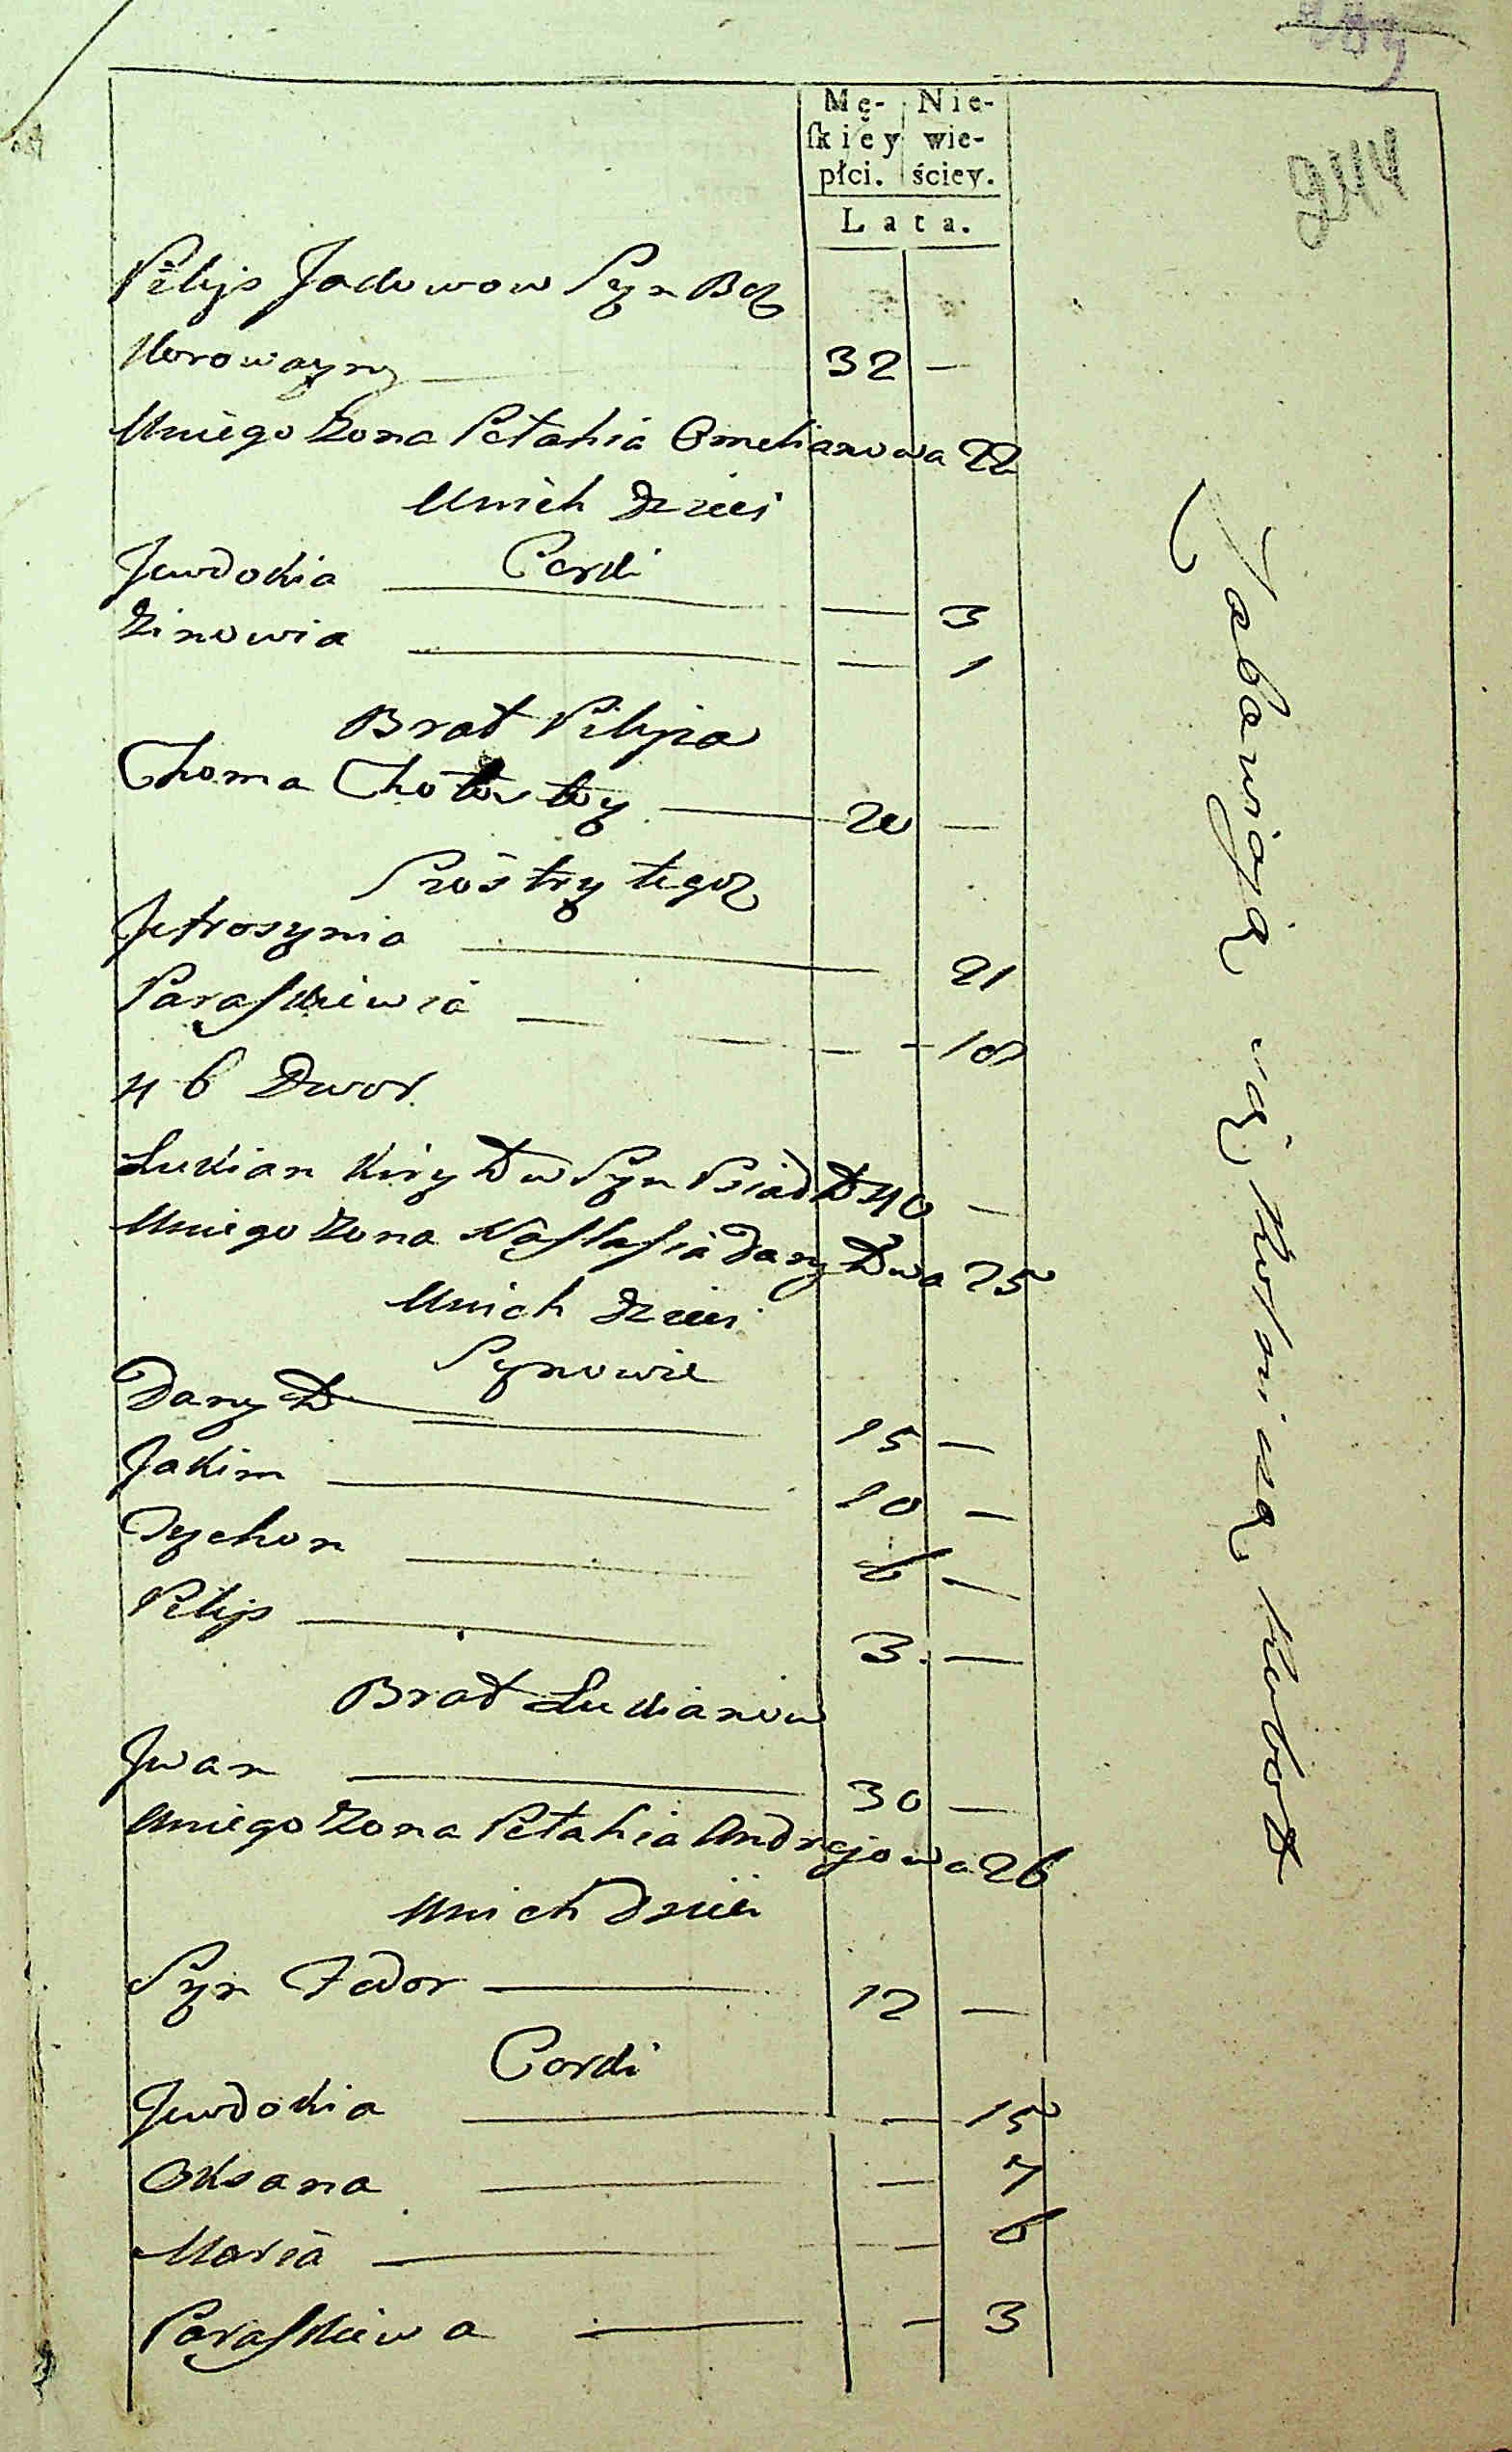 244
Mę- Nie-
ſkiéy wie-
płci. ściey.
Lata.
Pilip Jadowow Syn Bez
Korowayny 32 —
Uniego Zona Pełahia Omelianowa 22
Unich Dzieci
Corki
Jewdokia — 3
Zinowia — 1
Brat Pilipa
Choma 20 —
Siostry tegoz
Jefrosynia 21
Paraſkiewia — 18
46 Dwor.
Lukian Kiryłow Syn 40 —
Uniego Zona Naſtaſia Daniłowa 25
Unich Dzieci
Synowie
Danyło 15 —
Jakim 10 —
Tychon 6 —
Pilip 3 —
Brat Lukianow
Jwan 30 —
Uniego Zona Pełahia Andrejowa 26
Unich Dzieci
Syn Fedor 12 —
Corki
Jewdokia — 15
Oksana — 7
Maria — 6
Paraſkiewa — 3
Zabawiaią się Rolniczą Robotą